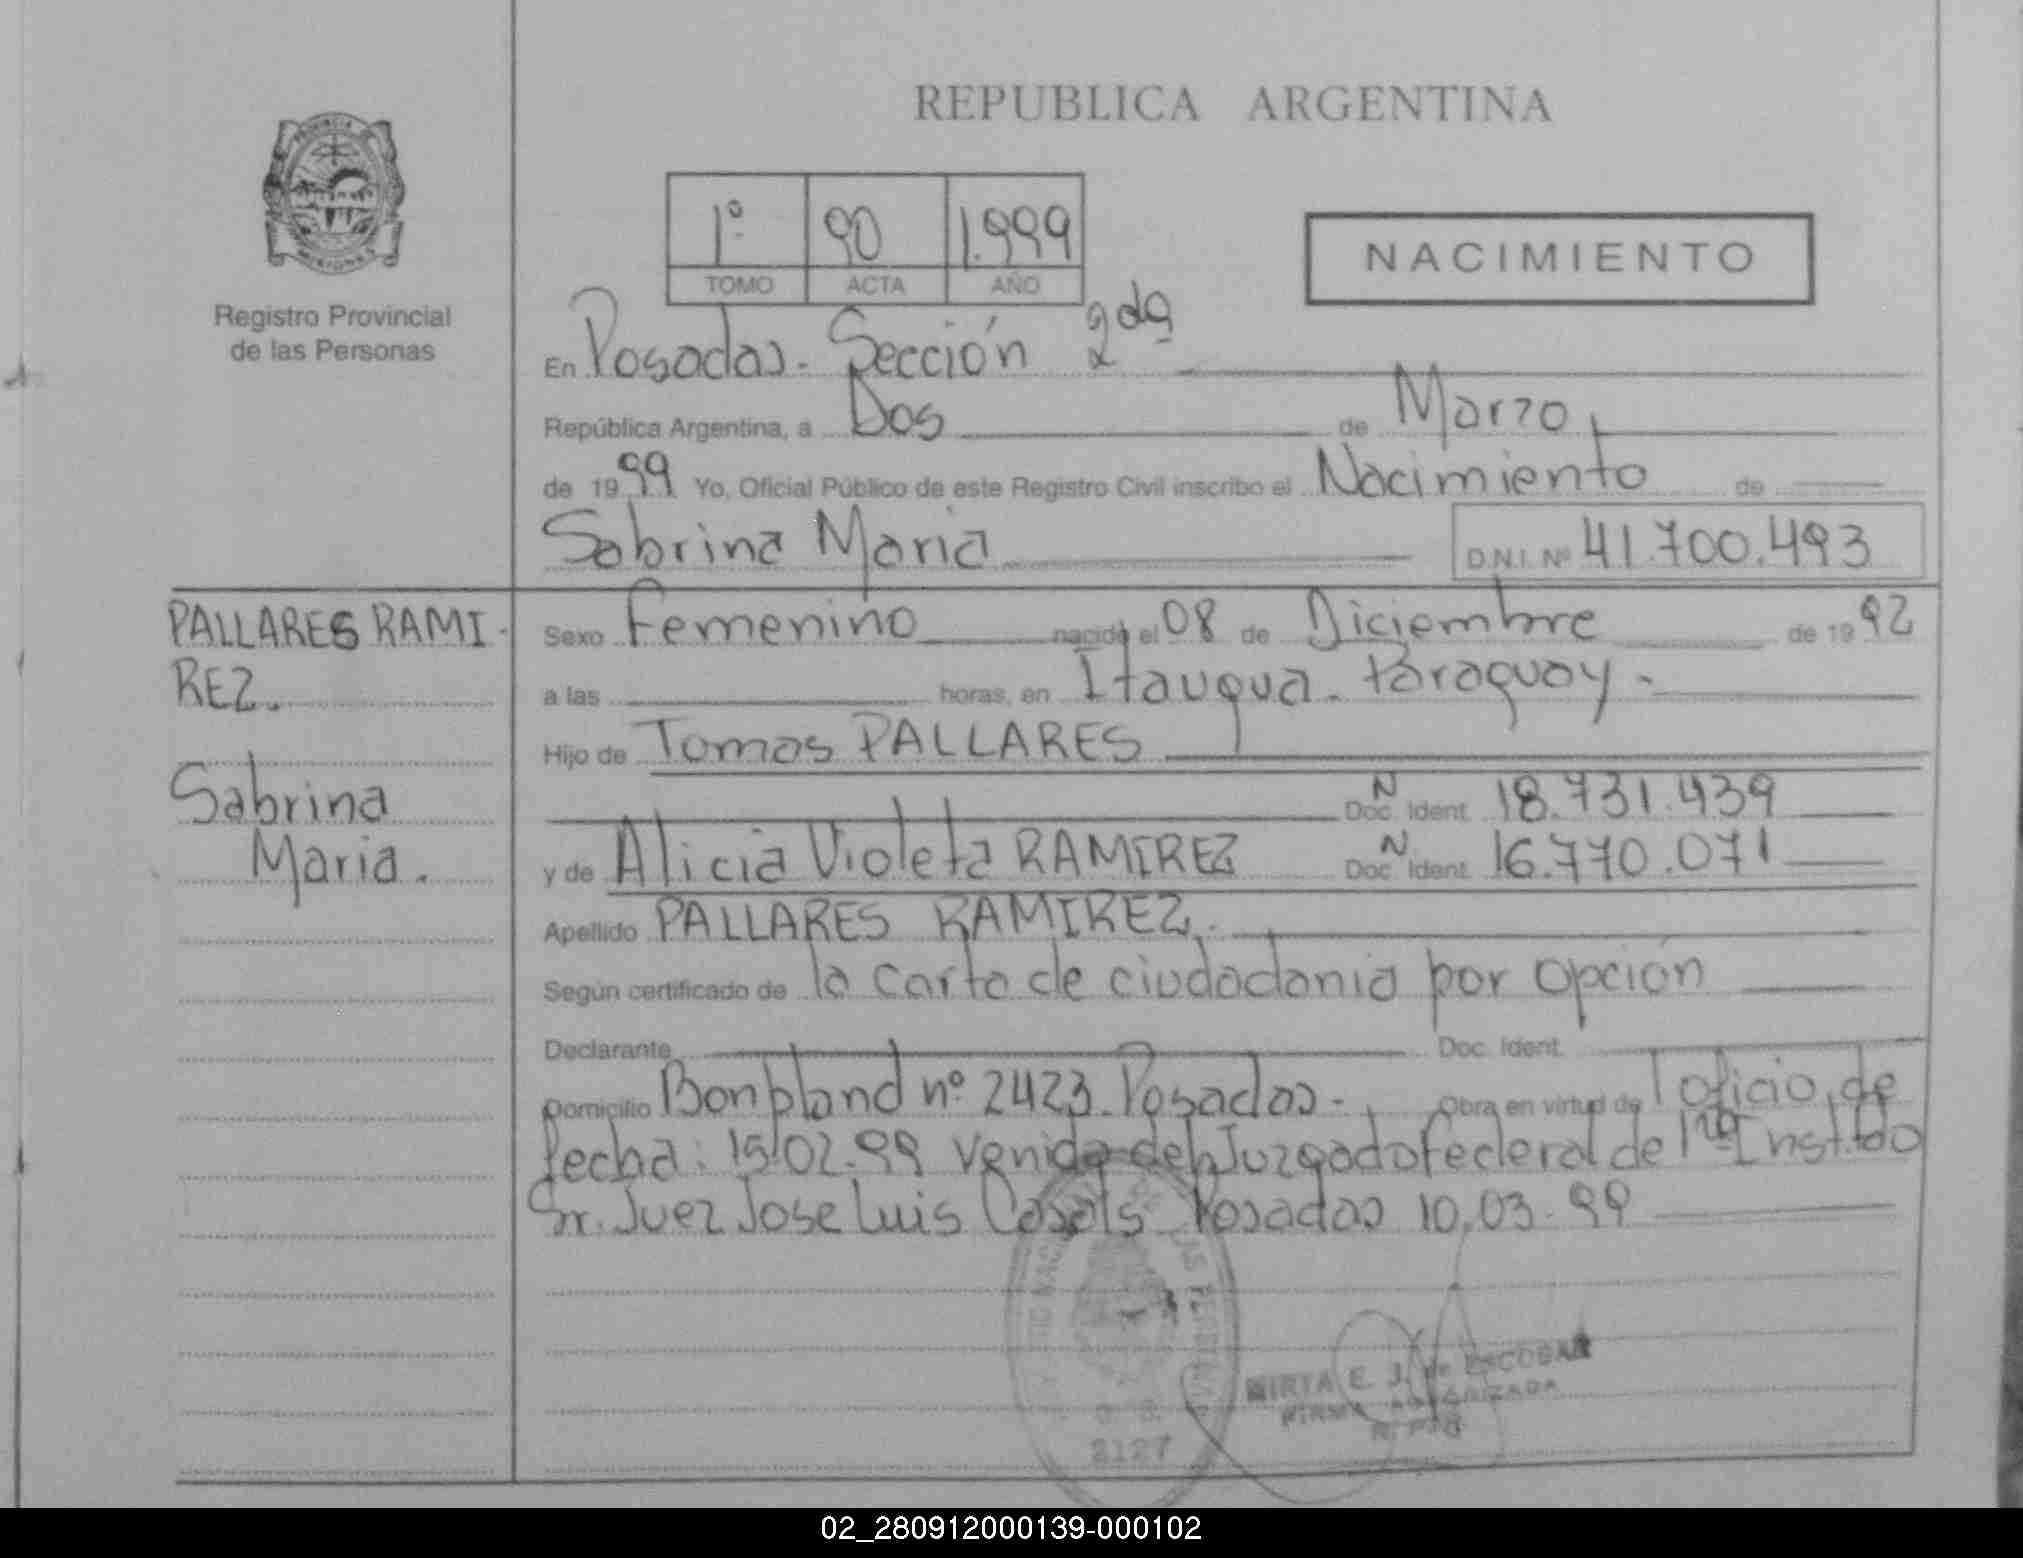 REPUBLICA ARGENTINA
PROVINCIA DE
MISIONES
Registro Provincial
de las Personas
1º 90 1.999
TOMO ACTA AÑO
NACIMIENTO
En Posadas. Sección 2da
República Argentina, a Dos de Marzo
de 1999 Yo, Oficial Público de este Registro Civil inscribo el Nacimiento de
Sabrina Maria D.N.I. Nº 41.700.493
PALLARES RAMI-
REZ.
Sabrina
Maria.
Sexo Femenino nacido el 08 de Diciembre de 1992
a las horas, en Itaugua. Paraguay.
Hijo de Tomas PALLARES
N Doc. Ident. 18.731.439
y de Alicia Violeta RAMIREZ N Doc. Ident. 16.770.071
Apellido PALLARES RAMIREZ.
Según certificado de la carta de ciudadania por opción
Declarante Doc. Ident.
Domicilio Bonpland nº 2423. Posadas. Obra en virtud de oficio de
fecha: 15.02.99 venido del Juzgado Federal de 1ra Inst.
Sr. Juez Jose Luis Casals Posadas 10.03.99
MIRTA E. J. de ESCOBAR
FIRMA AUTORIZADA
2127
02_280912000139-000102